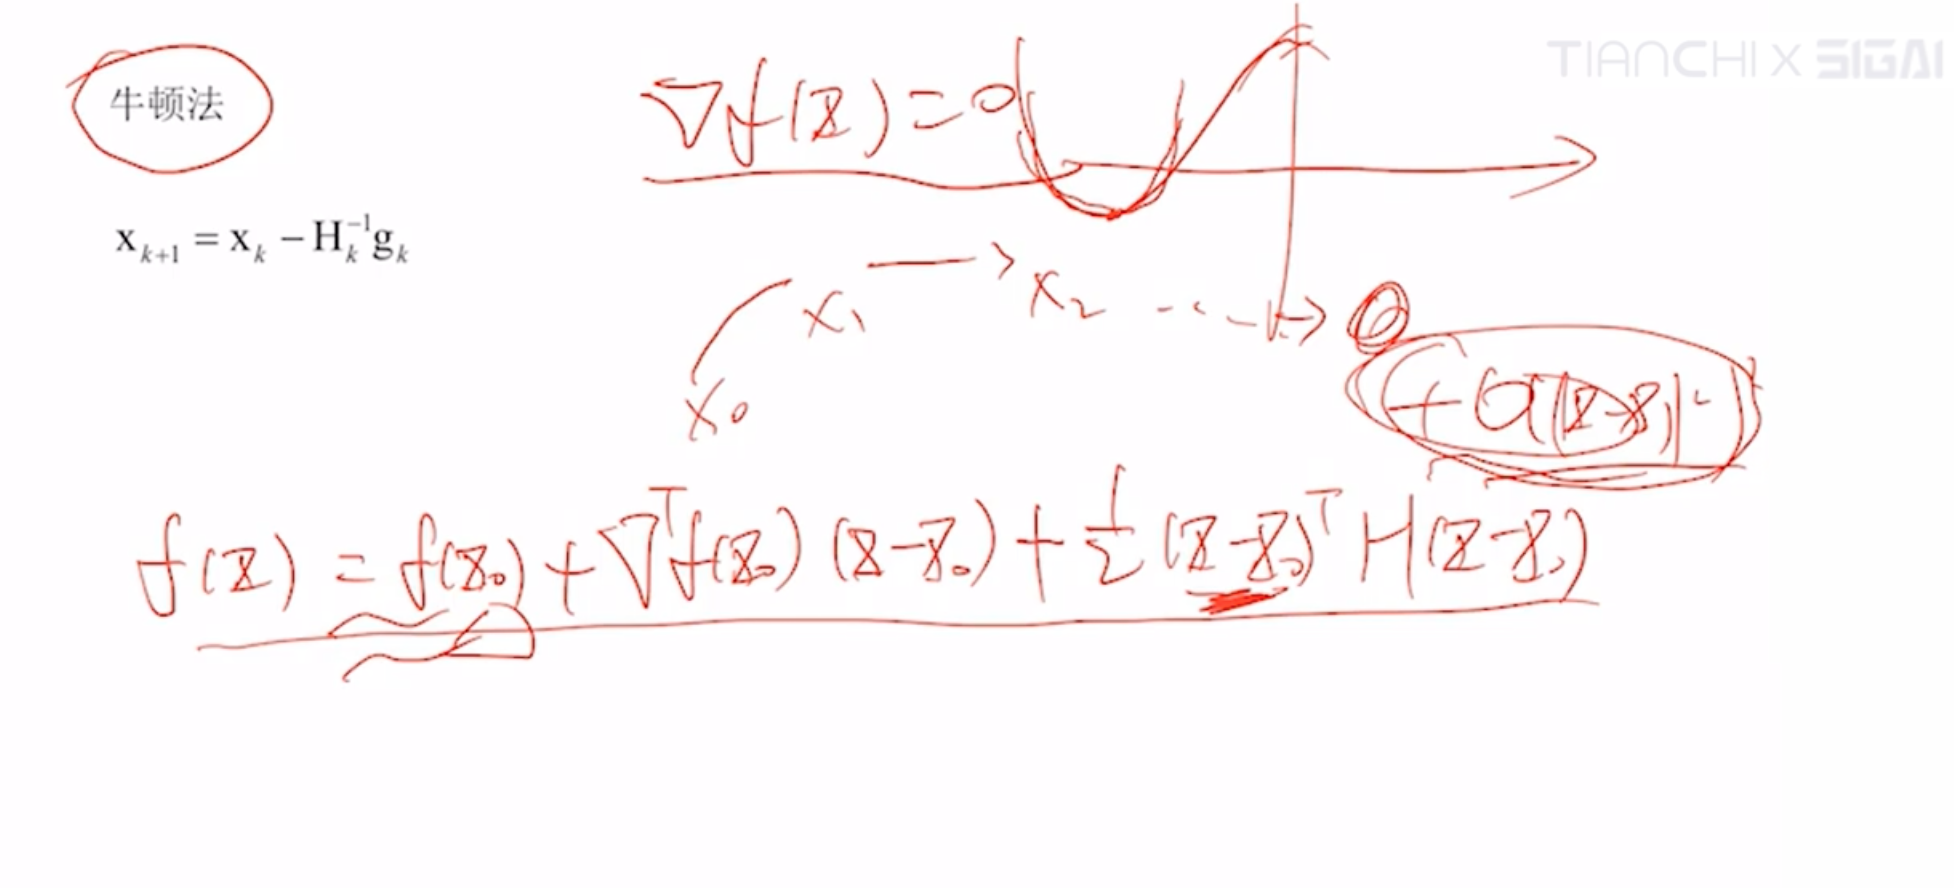 TIANCHI X SIGAI
牛顿法
∇f(x)=0
x_{k+1} = x_k − H_k^{-1} g_k
x_0 x_1 → x_2 ---→
+ o(|x-x_0|^2)
f(x) = f(x_0) + ∇^T f(x_0) (x-x_0) + 1/2 (x-x_0)^T H (x-x_0)